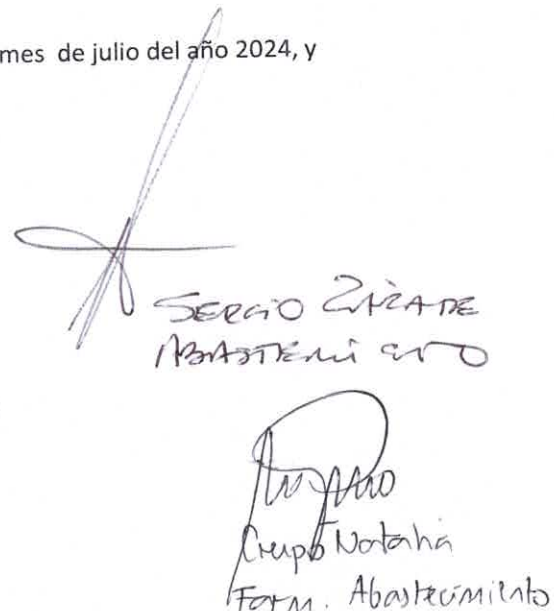 mes de julio del año 2024, y
SERGIO ZARATE
ABASTECIMIENTO
Crespo Natalia
Farm. Abastecimiento